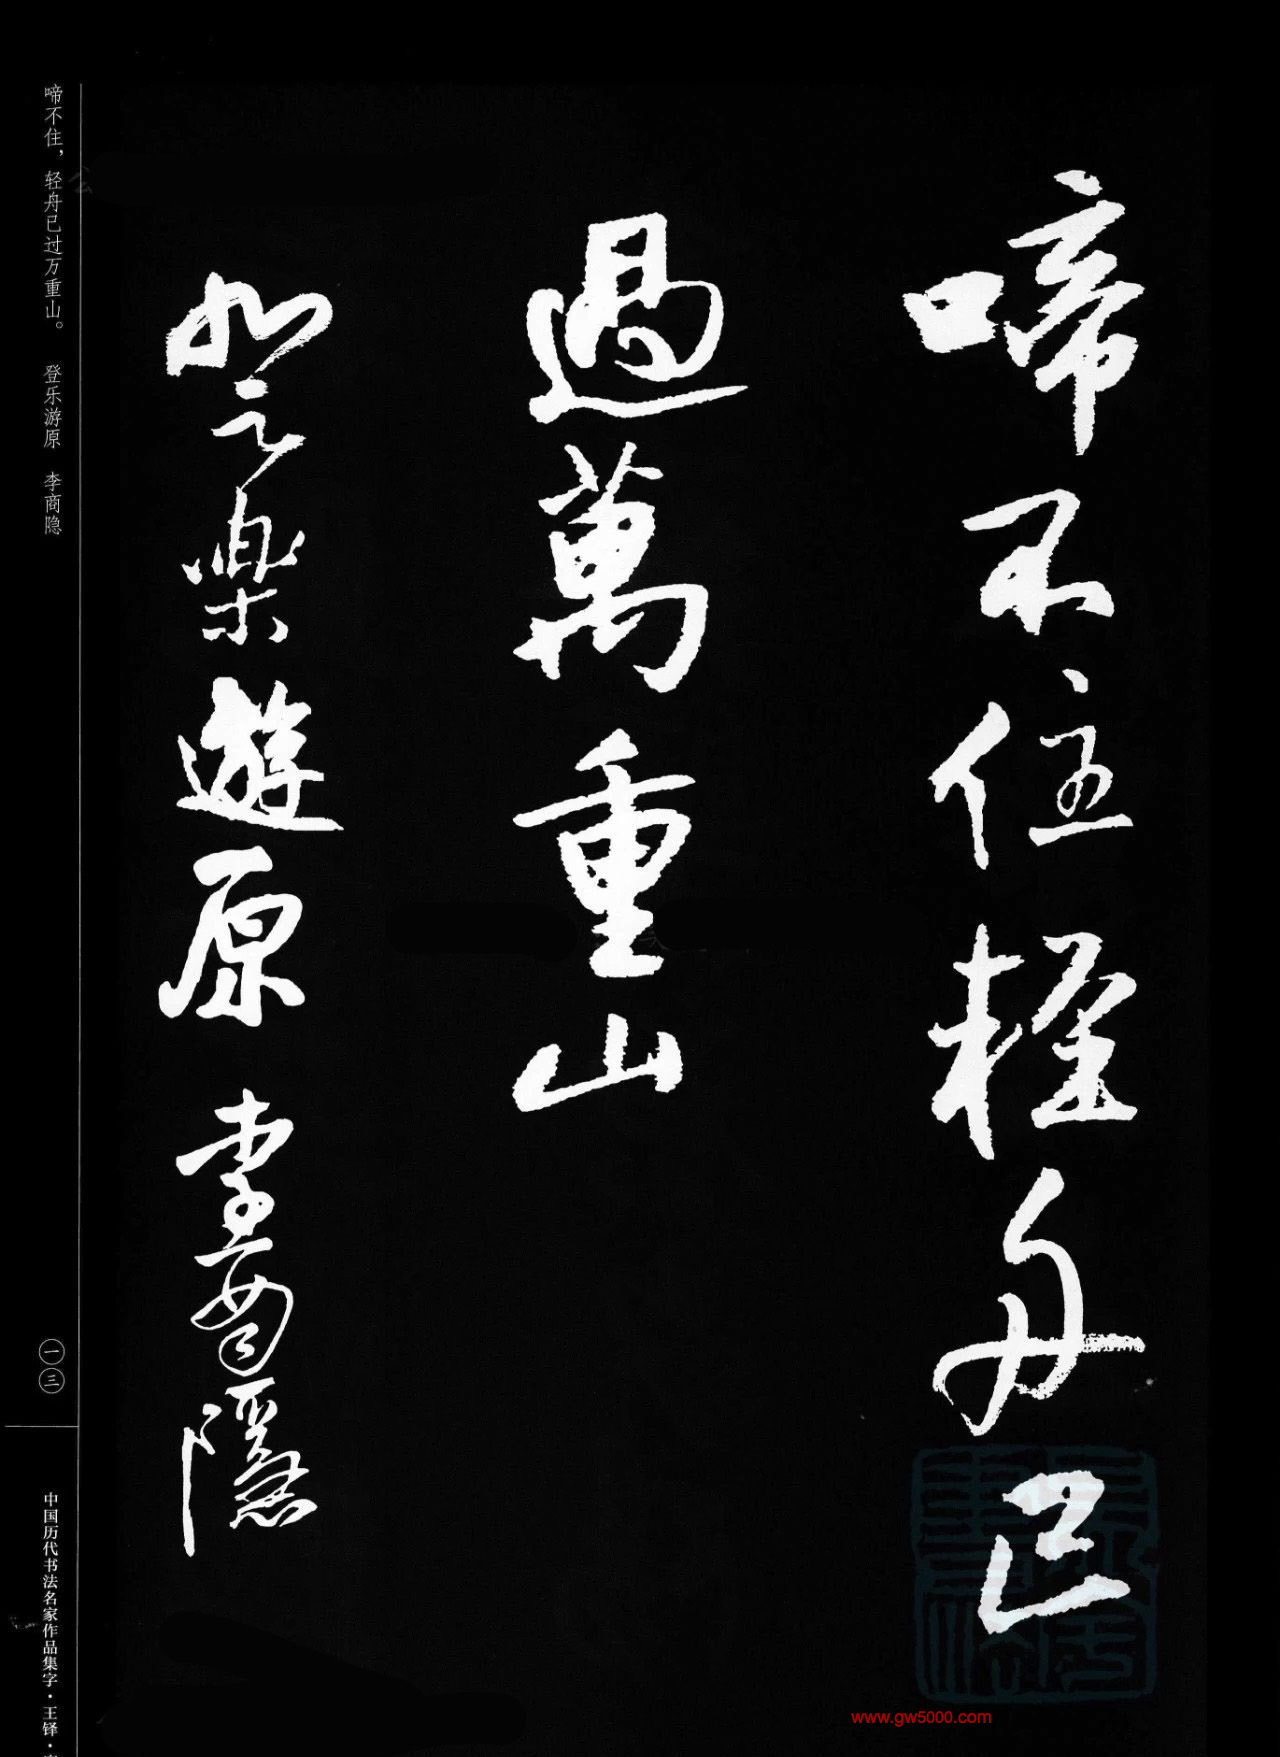 啼不住輕舟已
過萬重山
登樂遊原 李商隱
啼不住，轻舟已过万重山。 登乐游原 李商隐
一三
中国历代书法名家作品集字·王铎·
www.gw5000.com